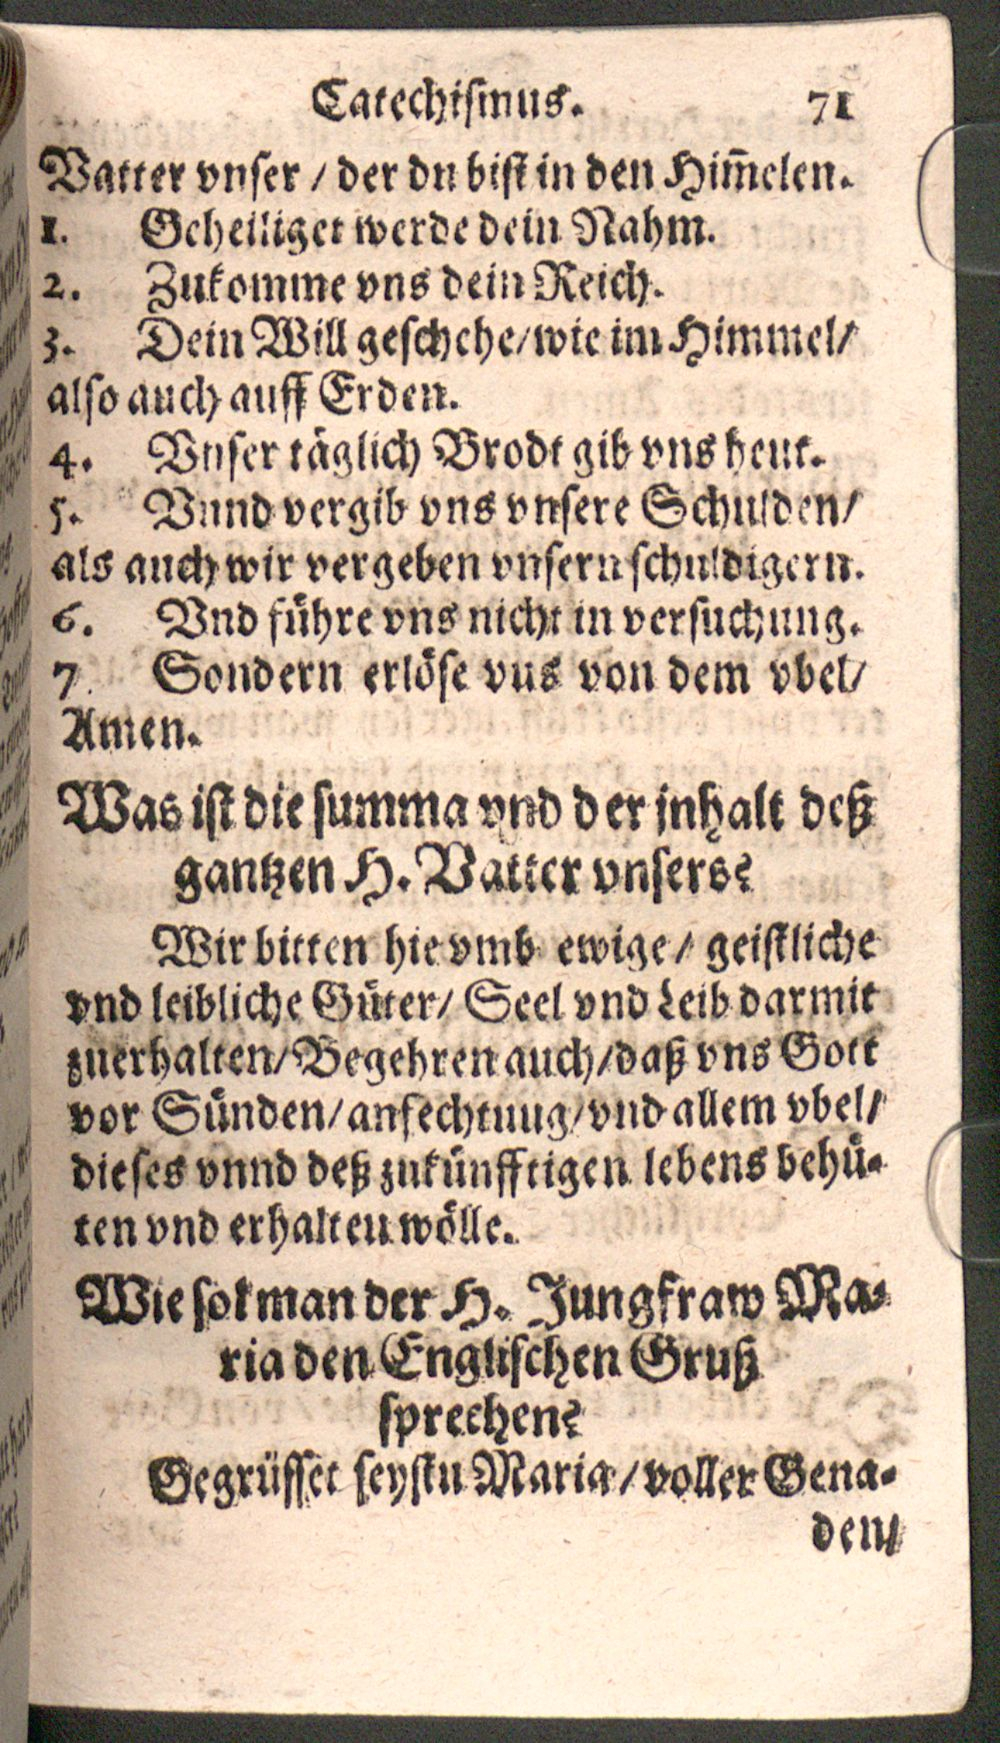 Catechismus. 71
Vatter vnser / der du bist in den Him̄elen.
1. Geheiliget werde dein Nahm.
2. Zukomme vns dein Reich.
3. Dein Will geschehe/wie im Himmel/
also auch auff Erden.
4. Vnser täglich Brodt gib vns heut.
5. Vnnd vergib vns vnsere Schulden/
als auch wir vergeben vnsern schuldigern.
6. Vnd führe vns nicht in versuchung.
7. Sondern erlöse vns von dem vbel/
Amen.
Was ist die summa vnd der jnhalt deß
gantzen H. Vatter vnsers?
Wir bitten hie vmb ewige / geistliche
vnd leibliche Güter/ Seel vnd Leib darmit
zuerhalten/Begehren auch/daß vns Gott
vor Sünden/anfechtung/vnd allem vbel/
dieses vnnd deß zukünfftigen lebens behü-
ten vnd erhalten wölle.
Wie sol man der H. Jungfraw Ma-
ria den Englischen Gruß
sprechen?
Gegrüsset seystu Maria/voller Gena-
den/